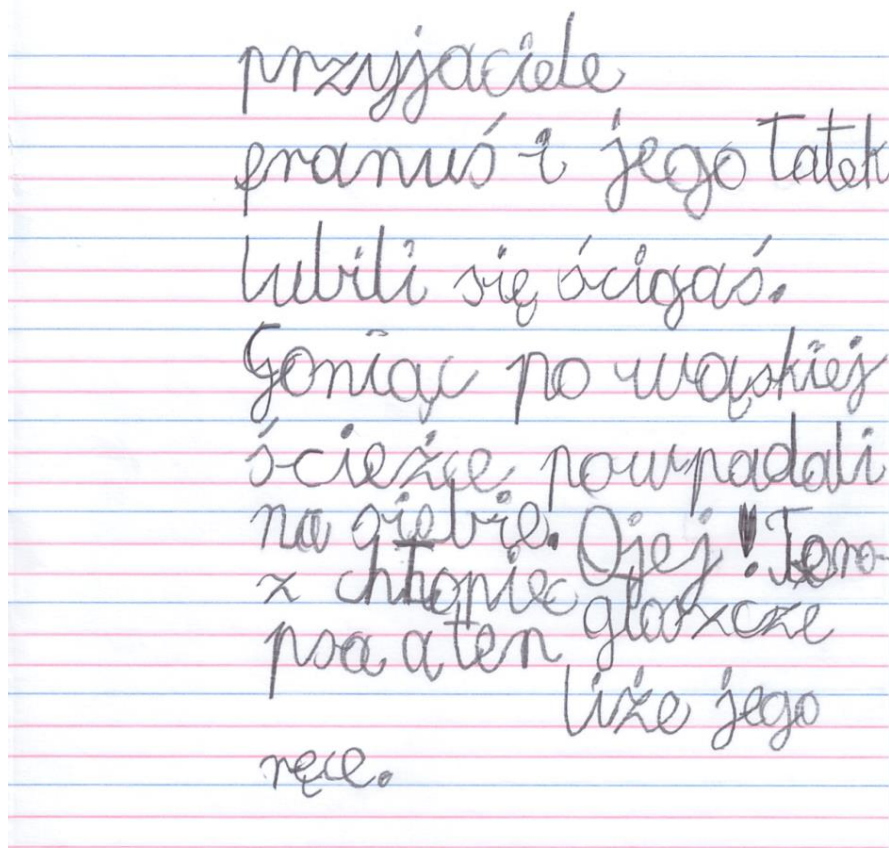 przyjaciele
franuś i jego Tatek
lubili się ścigaś.
Goniąc po wąskiej
ścieżce powpadali
na siebie. Ojej! Tera-
z chłopiec głaszcze
psa a ten
liże jego
ręce.